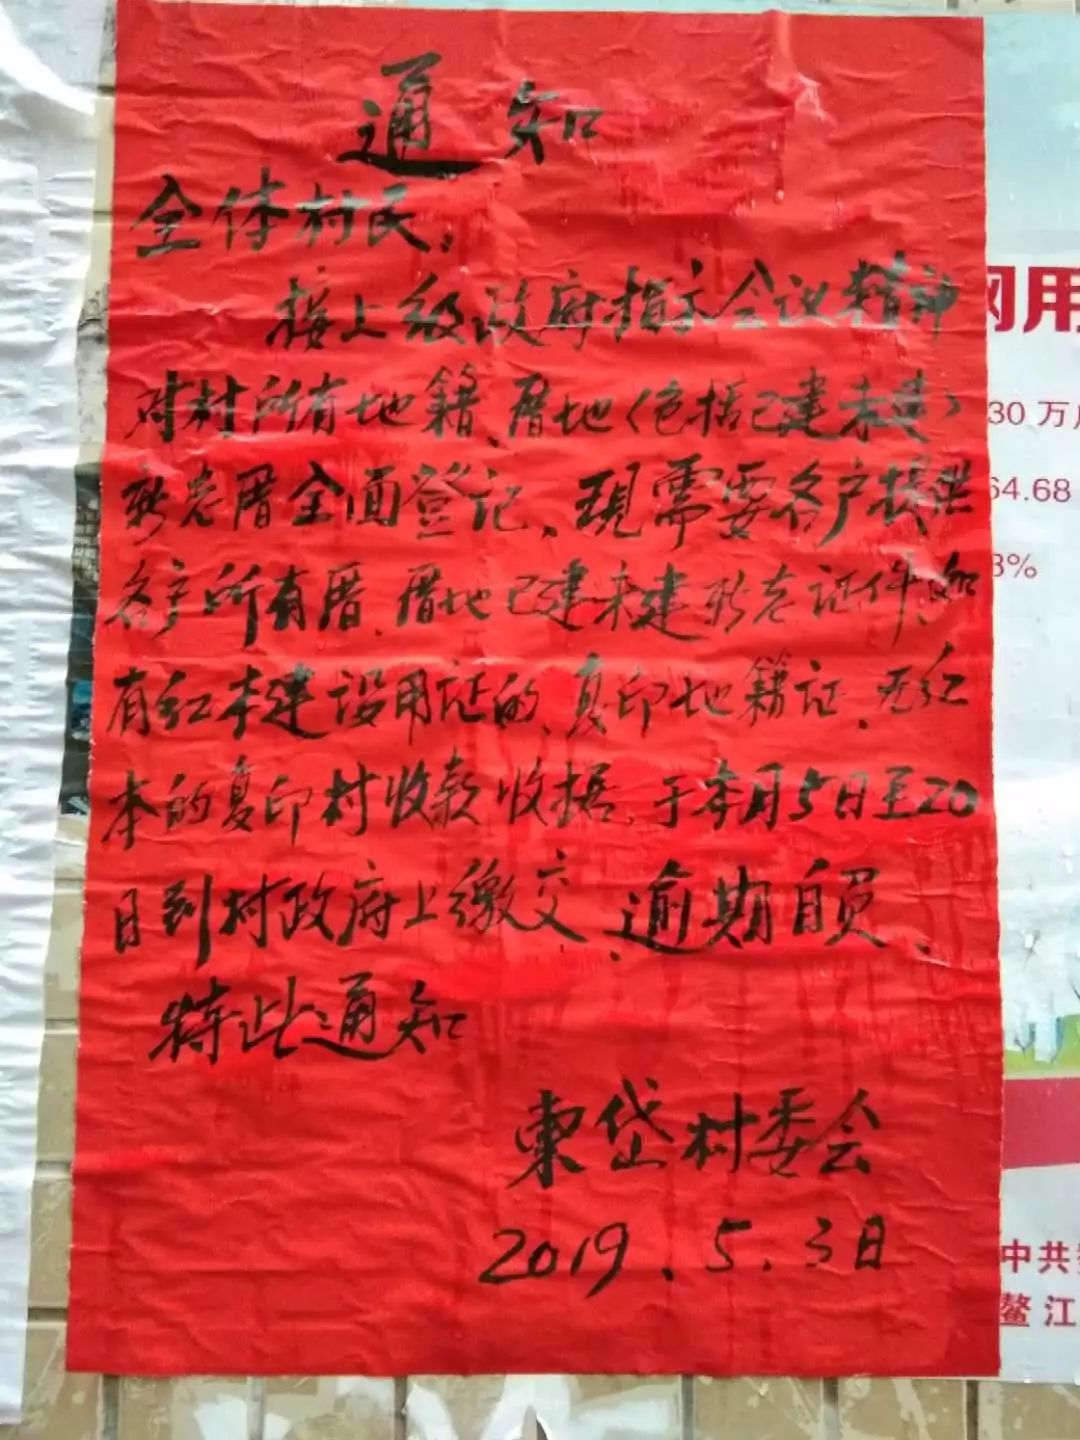 通知
全体村民.
接上级政府指示会议精神
对村所有地籍、厝地(包括已建未建)
新老厝全面登记.现需要各户提供
各户所有厝.厝地已建未建新老证件.如
有红本建设用证的、复印地籍证、无红
本的复印村收款收据.于本月5日至20
日到村政府上缴交、逾期自负、
特此通知
東岱村委会
2019.5.3日
用
30万
64.68
3%
中共
鳌江